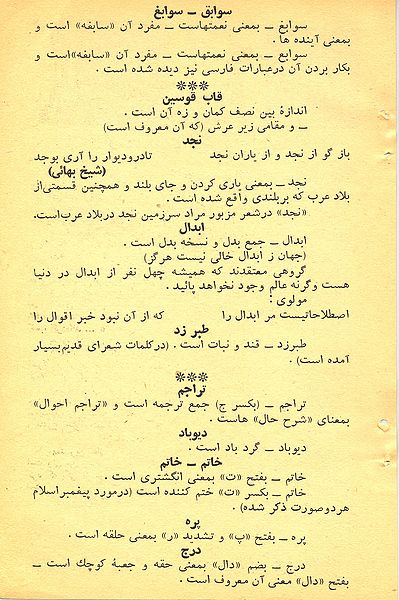 سوابق ــ سوابغ
سوابغ ــ بمعنی نعمتهاست ــ مفرد آن «سابغه» است و
بمعنی آینده ها .
سوابغ ــ بمعنی نعمتهاست ــ مفرد آن «سابغه» است و
بکار بردن آن درعبارات فارسی نیز دیده شده است .
***
قاب قوسین
اندازهٔ بین نصف کمان و زه آن است .
ــ و مقامی زیر عرش (که آن معروف است)
نجد
باز گو از نجد و از یاران نجد تادرودیوار را آری بوجد
(شیخ بهائی)
نجد ــ بمعنی یاری کردن و جای بلند و همچنین قسمتی‌از
بلاد عرب که بربلندی واقع شده است .
«نجد» درشعر مزبور مراد سرزمین نجد دربلاد عرب‌است.
ابدال
ابدال ــ جمع بدل و نسخه بدل است .
(جهان ز ابدال خالی نیست هرگز)
گروهی معتقدند که همیشه چهل نفر از ابدال در دنیا
هست وگرنه عالم وجود نخواهد پائید .
مولوی :
اصطلاحاتیست مر ابدال را که از آن نبود خبر اقوال را
طبر زد
طبرزد ــ قند و نبات است . (درکلمات شعرای قدیم‌بسیار
آمده است) .
***
تراجم
تراجم ــ (بکسر ج) جمع ترجمه است و «تراجم احوال»
بمعنای «شرح حال» هاست .
دیوباد
دیوباد ــ گرد باد است .
خاتم ــ خاتم
خاتم ــ بفتح «ت» بمعنی انگشتری است .
خاتم ــ بکسر «ت» ختم کننده است (درمورد پیغمبراسلام
هردوصورت ذکر شده) .
پره
پره ــ بفتح «پ» و تشدید «ر» بمعنی حلقه است .
درج
درج ــ بضم «دال» بمعنی حقه و جعبهٔ کوچك است ــ
بفتح «دال» معنی آن معروف است .